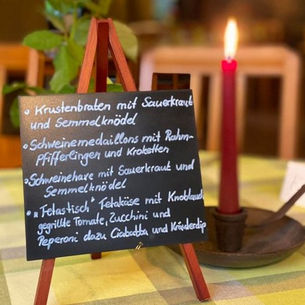 • Krustenbraten mit Sauerkraut
und Semmelknödel
• Schweinemedaillons mit Rahm-
Pfifferlingen und Kroketten
• Schweinehaxe mit Sauerkraut und
Semmelknödel
• "Felastisch" Fetakäse mit Knoblauch
gegrillte Tomate, Zucchini und
Peperoni dazu Ciabatta und Kräuterdip